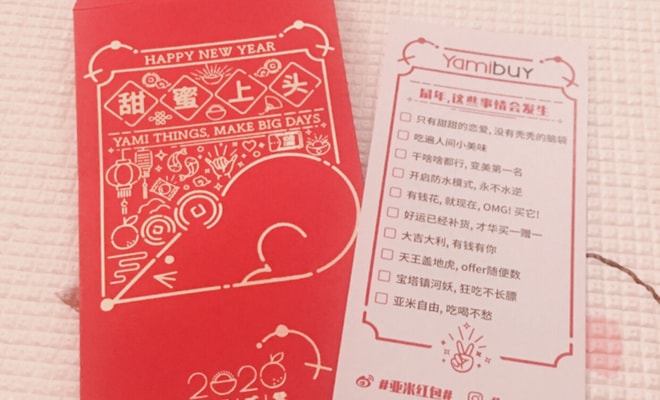 HAPPY NEW YEAR
甜蜜上头
YAMI THINGS, MAKE BIG DAYS
2020
Yamibuy
鼠年,这些事情会发生
只有甜甜的恋爱,没有秃秃的脑袋
吃遍人间小美味
干啥啥都行,变美第一名
开启防水模式,永不水逆
有钱花,就现在,OMG! 买它!
好运已经补货,才华买一赠一
大吉大利,有钱有你
天王盖地虎,offer随便数
宝塔镇河妖,狂吃不长膘
亚米自由,吃喝不愁
#亚米红包#